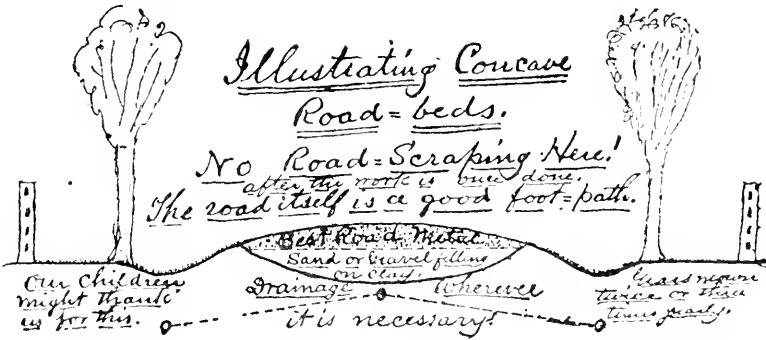 Illustrating Concave
Road=beds.
No Road=Scraping Here!
after the work is once done.
The road itself is a good foot=path.
Best Road Metal
Sand or Gravel filling
on clay.
Our Children
might thank
us for this.
Drainage Wherever
it is necessary!
Grass mown
twice or three
times yearly.